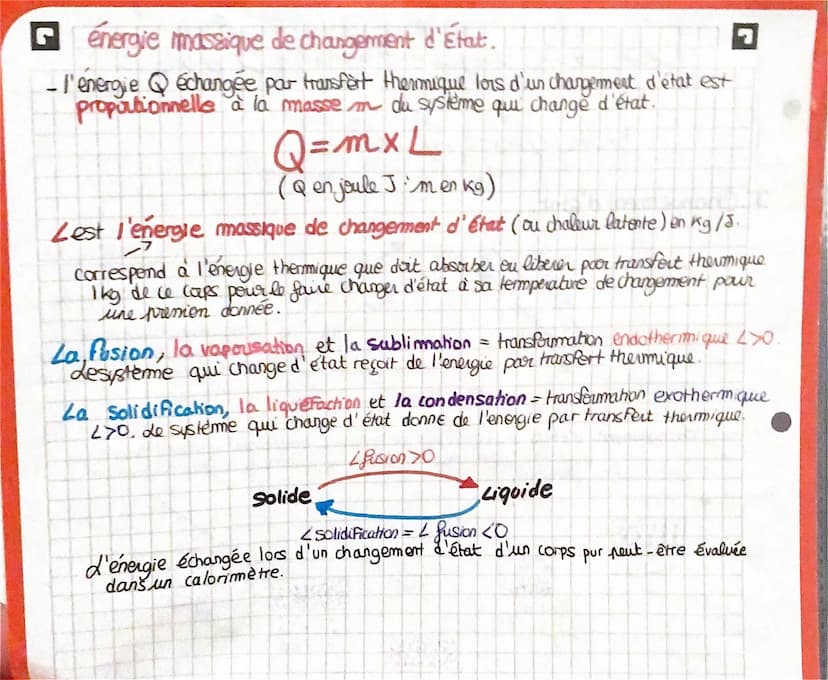 énergie massique de changement d'État.
- l'énergie Q échangée par transfert thermique lors d'un changement d'état est
proportionnelle à la masse m du système qui change d'état.
Q = m x L
(Q en joule J ; m en kg)
L est l'énergie massique de changement d'État (ou chaleur latente) en kg/J.
correspond à l'énergie thermique que doit absorber ou liberer pour transfert thermique
1kg de ce corps pour le faire changer d'état à sa temperature de changement pour
une donnée.
La fusion, la vaporisation et la sublimation = transformation endothermique L>0.
Le système qui change d'état reçoit de l'energie par transfert thermique.
La solidification, la liquéfaction et la condensation = transformation exothermique
L>0. Le système qui change d'état donne de l'energie par transfert thermique.
L fusion >0
Solide
Liquide
L solidification = L fusion <0
L'énergie échangée lors d'un changement d'état d'un corps pur peut-être évaluée
dans un calorimètre.